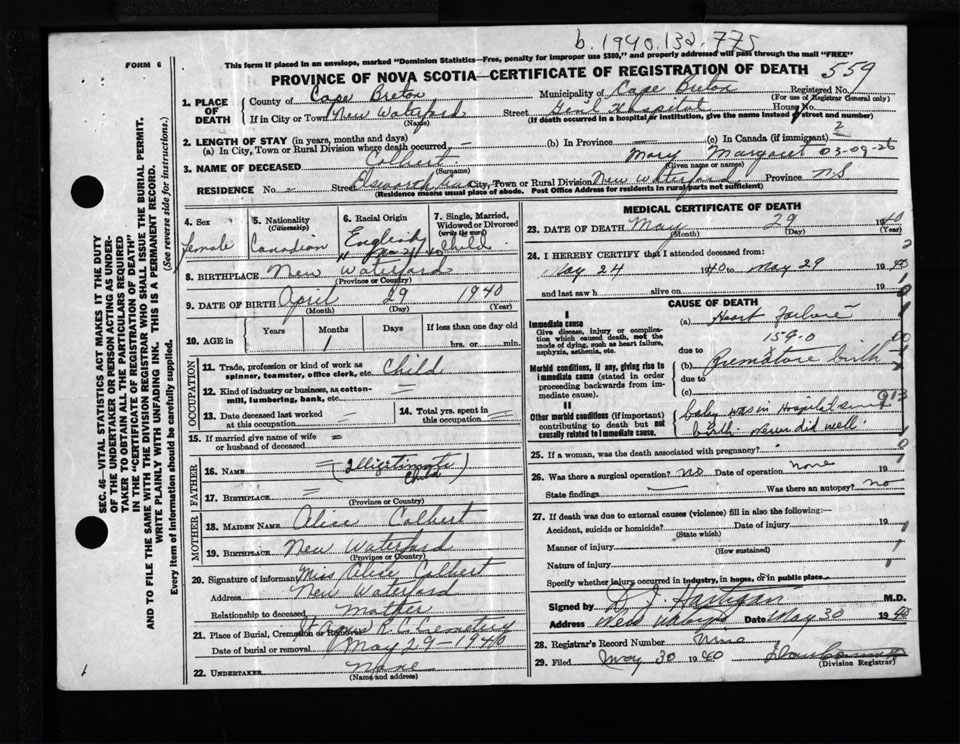 b. 1940. 132-775
FORM 6
This form if placed in an envelope, marked "Dominion Statistics—Free, penalty for improper use $300," and properly addressed will pass through the mail "FREE"
PROVINCE OF NOVA SCOTIA—CERTIFICATE OF REGISTRATION OF DEATH 559
1. PLACE OF DEATH
County of Cape Breton Municipality of Cape Breton Registered No.
(For use of Registrar General only)
If in City or Town New Waterford Street Gen'l Hospital House No.
(Name) (If death occurred in a hospital or institution, give the name instead of street and number)
2. LENGTH OF STAY (in years, months and days)
(a) In City, Town or Rural Division where death occurred – (b) In Province – (c) In Canada (if immigrant) 2
3. NAME OF DECEASED Colbert Mary Margaret 03-09-26
(Surname) (Given name or names)
RESIDENCE No. – Street City, Town or Rural Division New Waterford Province N.S
(Residence means usual place of abode. Post Office Address for residents in rural parts not sufficient)
4. Sex Female
5. Nationality (Citizenship) Canadian
6. Racial Origin English
7. Single, Married, Widowed or Divorced (write the word) Child
8. BIRTHPLACE New Waterford
(Province or Country)
9. DATE OF BIRTH April 29 1940
(Month) (Day) (Year)
10. AGE in Years Months Days If less than one day old
1 hrs. or min.
OCCUPATION
11. Trade, profession or kind of work as spinner, teamster, office clerk, etc. Child
12. Kind of industry or business, as cotton-mill, lumbering, bank, etc. =
13. Date deceased last worked at this occupation =
14. Total yrs. spent in this occupation =
15. If married give name of wife or husband of deceased =
FATHER
16. Name = (Illigitimate Child)
17. Birthplace =
(Province or Country)
MOTHER
18. Maiden Name Alice Colbert
19. Birthplace New Waterford
(Province or Country)
20. Signature of informant Miss Alice Colbert
Address New Waterford
Relationship to deceased Mother
21. Place of Burial, Cremation or Removal R.C. Cemetery
Date of burial or removal May 29-1940
22. UNDERTAKER None
(Name and address)
MEDICAL CERTIFICATE OF DEATH
23. DATE OF DEATH May 29 1940
(Month) (Day) (Year)
24. I HEREBY CERTIFY that I attended deceased from:
May 24 1940 to May 29 1940
and last saw h alive on 19
CAUSE OF DEATH
I
Immediate cause
Give disease, injury or complication which caused death, not the mode of dying, such as heart failure, asphyxia, asthenia, etc.
(a) Heart Failure
159-0
due to
Morbid conditions, if any, giving rise to immediate cause (stated in order proceeding backwards from immediate cause).
(b) Premature birth
due to
(c)
II
Other morbid conditions (if important) contributing to death but not causally related to immediate cause.
baby was in Hospital since
birth. Never did well.
25. If a woman, was the death associated with pregnancy?
26. Was there a surgical operation? no Date of operation none 19
State findings — Was there an autopsy? no
27. If death was due to external causes (violence) fill in also the following:—
Accident, suicide or homicide? Date of injury 19
(State which)
Manner of injury
(How sustained)
Nature of injury
Specify whether injury occurred in industry, in home, or in public place
Signed by D. J. Hartigan M.D.
Address New Waterford Date May 30 1940
28. Registrar's Record Number Nine
29. Filed May 30 1940
(Division Registrar)
SEC. 46—VITAL STATISTICS ACT MAKES IT THE DUTY
OF THE UNDERTAKER OR PERSON ACTING AS UNDER-
TAKER TO OBTAIN ALL THE PARTICULARS REQUIRED
IN THE "CERTIFICATE OF REGISTRATION OF DEATH"
AND TO FILE THE SAME WITH THE DIVISION REGISTRAR WHO SHALL ISSUE THE BURIAL PERMIT.
WRITE PLAINLY WITH UNFADING INK. THIS IS A PERMANENT RECORD.
Every item of information should be carefully supplied. (See reverse side for instructions.)